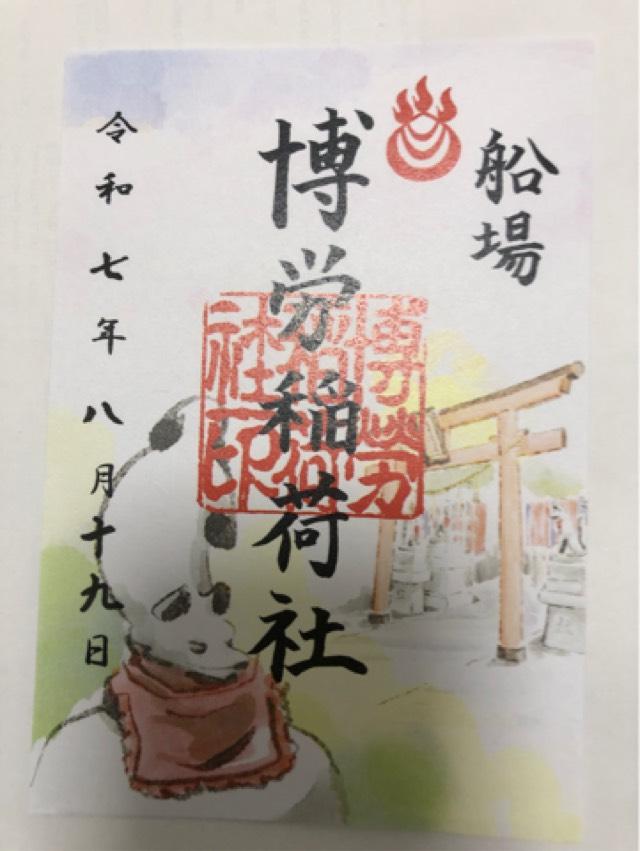 船場
博労稲荷社
博労
稲荷
社印
令和七年八月十九日